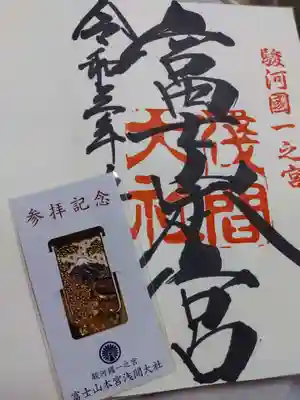 駿河國一之宮
富士本宮
淺間
大社
令和三年
参拝記念
駿河國一之宮
富士山本宮浅間大社